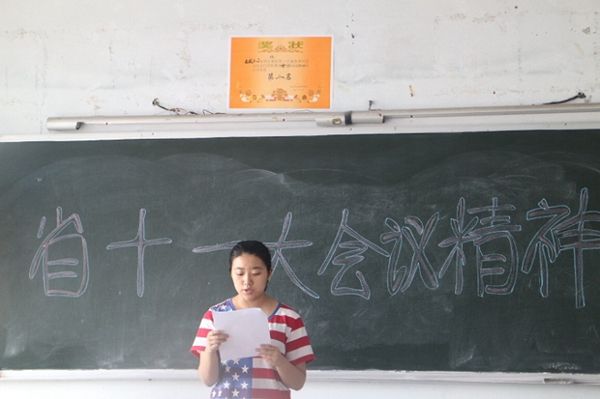 奖状
第八名
省十一大会议精神